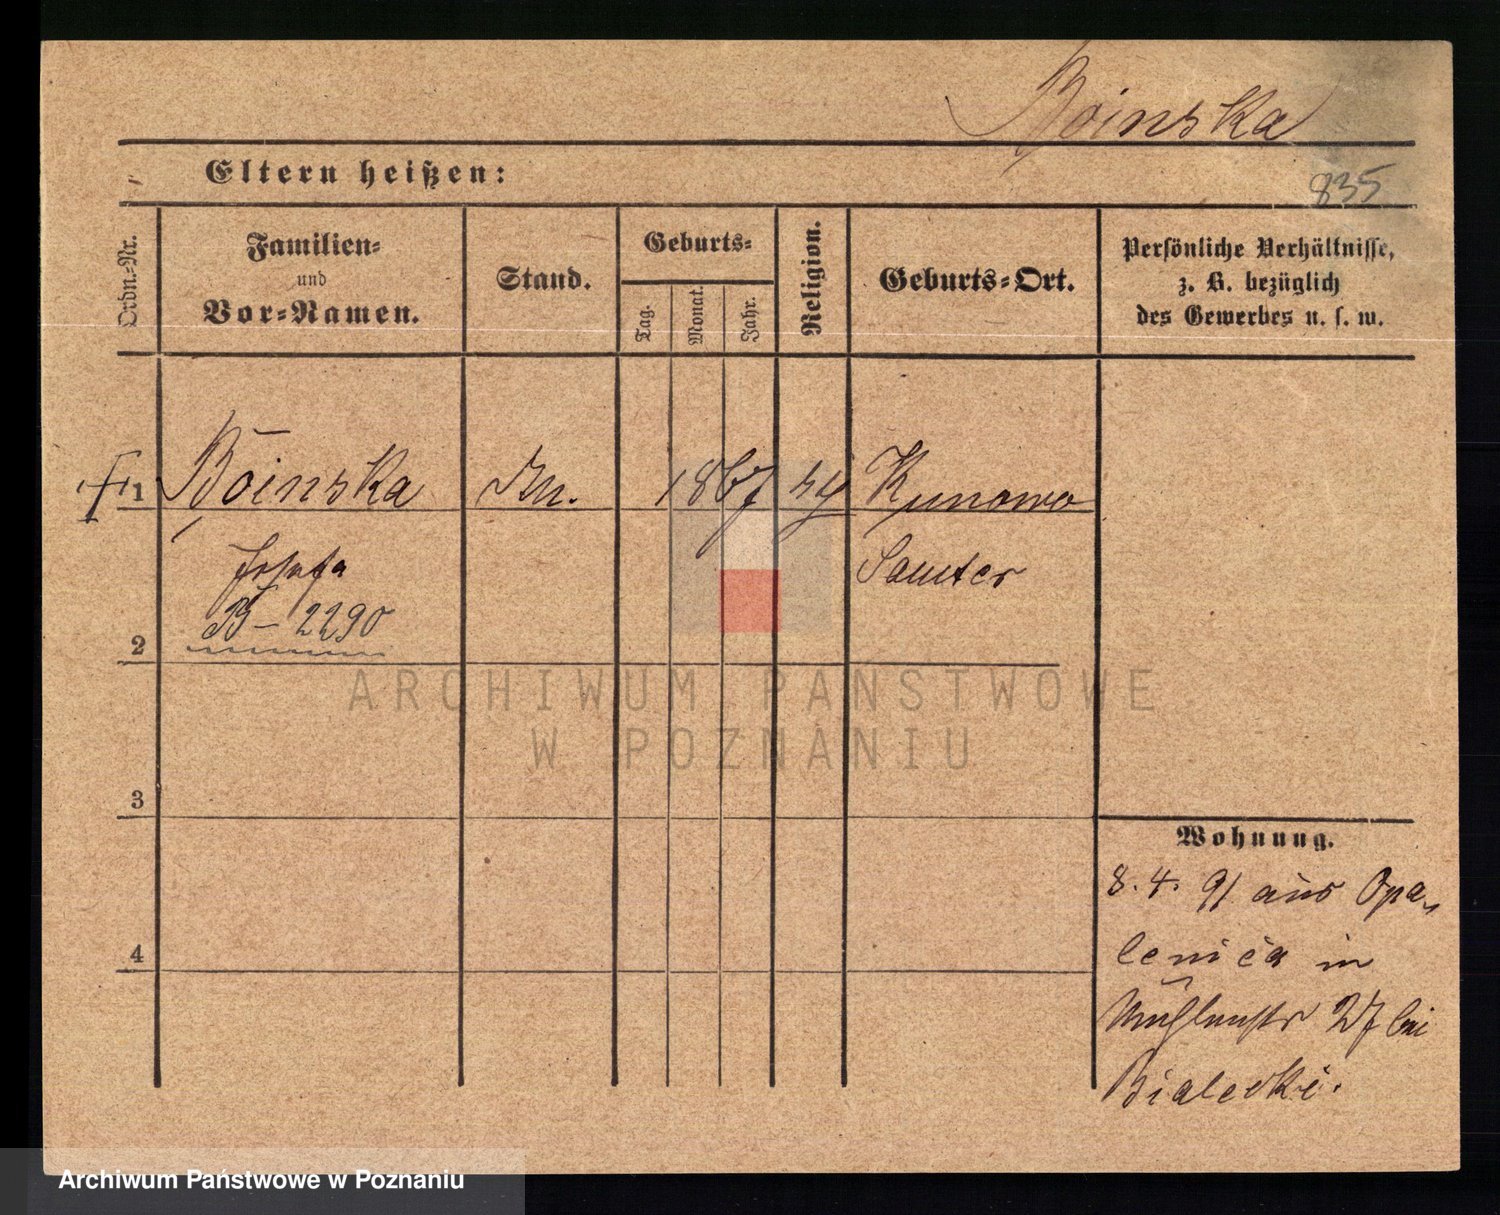 Boinska
Eltern heißen:
835
Ordn.-Nr.
Familien-
und
Vor-Namen.
Stand.
Geburts-
Tag.
Monat.
Jahr.
Religion.
Geburts-Ort.
Persönliche Verhältnisse,
z. B. bezüglich
des Gewerbes u. s. w.
1 Boinska 1867 Kunowo
Josefa Samter
B - 2290
2
ARCHIWUM PAŃSTWOWE
W POZNANIU
3
Wohnung.
8. 4. 91 aus Opa-
lenica in
4
Mühlenstr 27 bei
Bialecki.
Archiwum Państwowe w Poznaniu